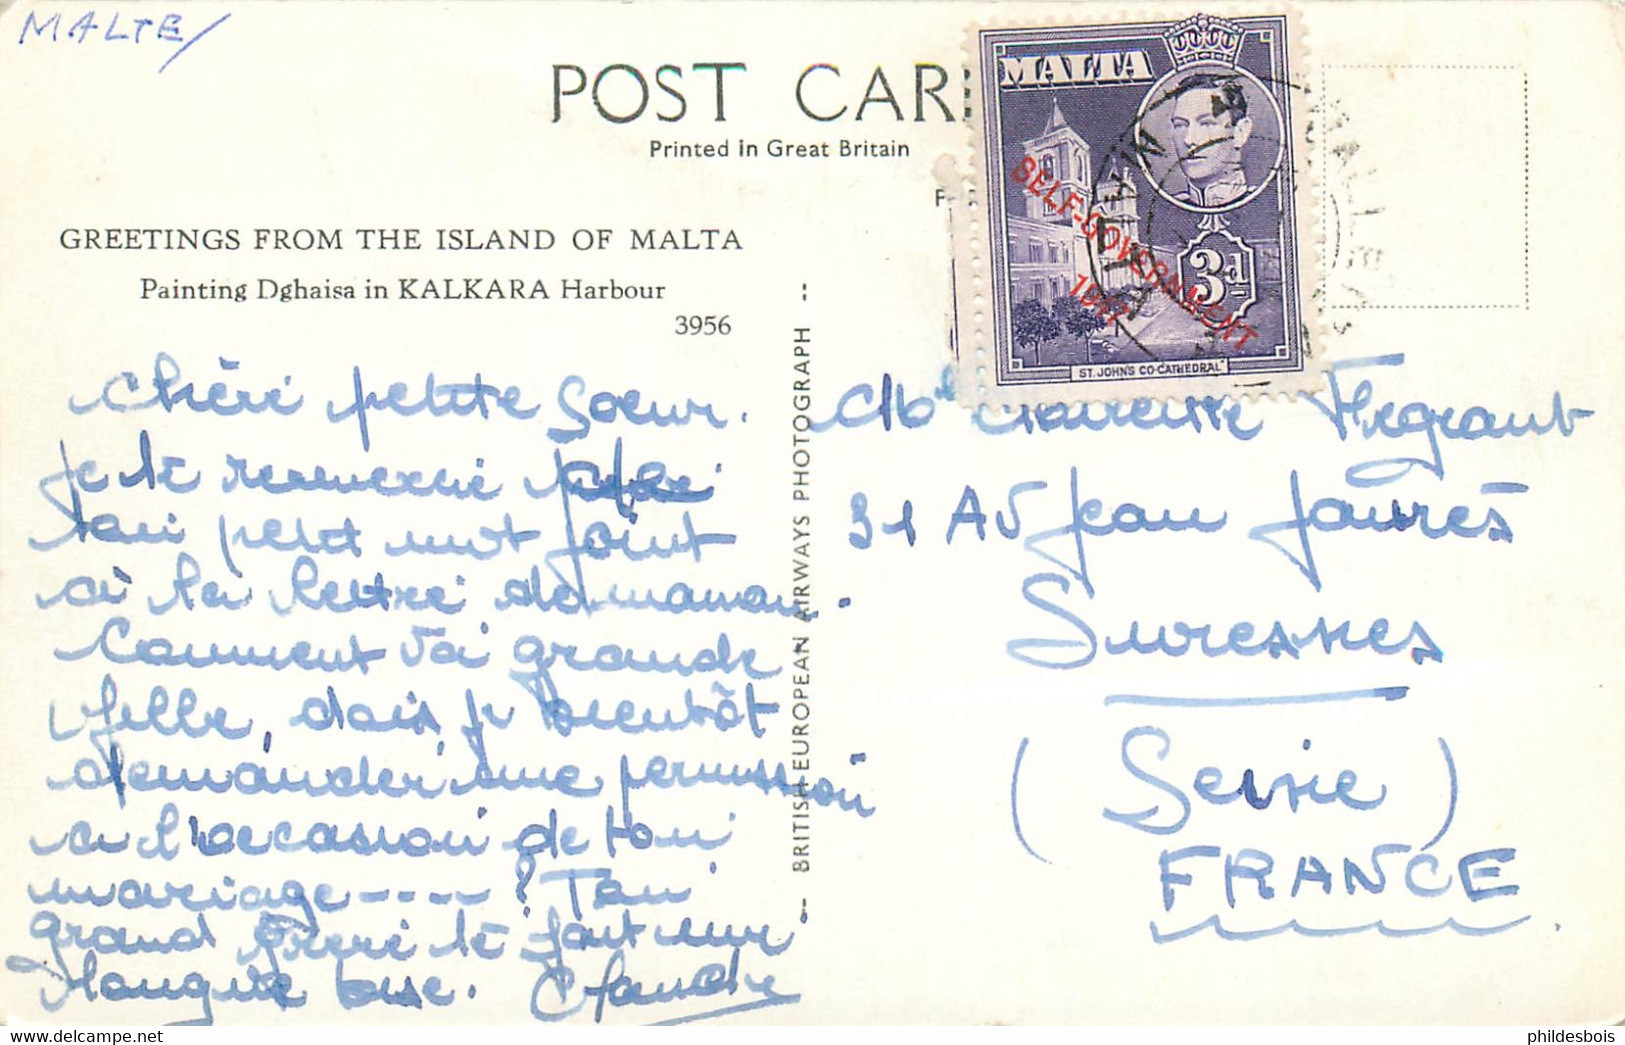 MALTE
POST CAR
Printed in Great Britain
GREETINGS FROM THE ISLAND OF MALTA
Painting Dghaisa in KALKARA Harbour
3956
BRITISH EUROPEAN AIRWAYS PHOTOGRAPH
MALTA
SELF-GOVERNMENT
1947
3d
ST. JOHN'S CO-CATHEDRAL
MALTA
VALLETTA
Chère petite Soeur.
Je te remercie
ton petit mot joint
à la lettre de maman.
Comment va grande
fille, dois je bientôt
demander une permission
à l'occasion de ton
mariage ---- ? Ton
grand frère te fait une
grosse bise. Claude
31 Av Jean Jaurès
Suresnes
(Seine)
FRANCE
phildesbois